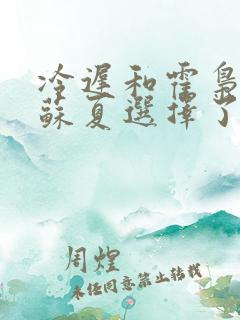 冷遲和霍梟
蘇夏選擇了
周煌
未经同意禁止转载